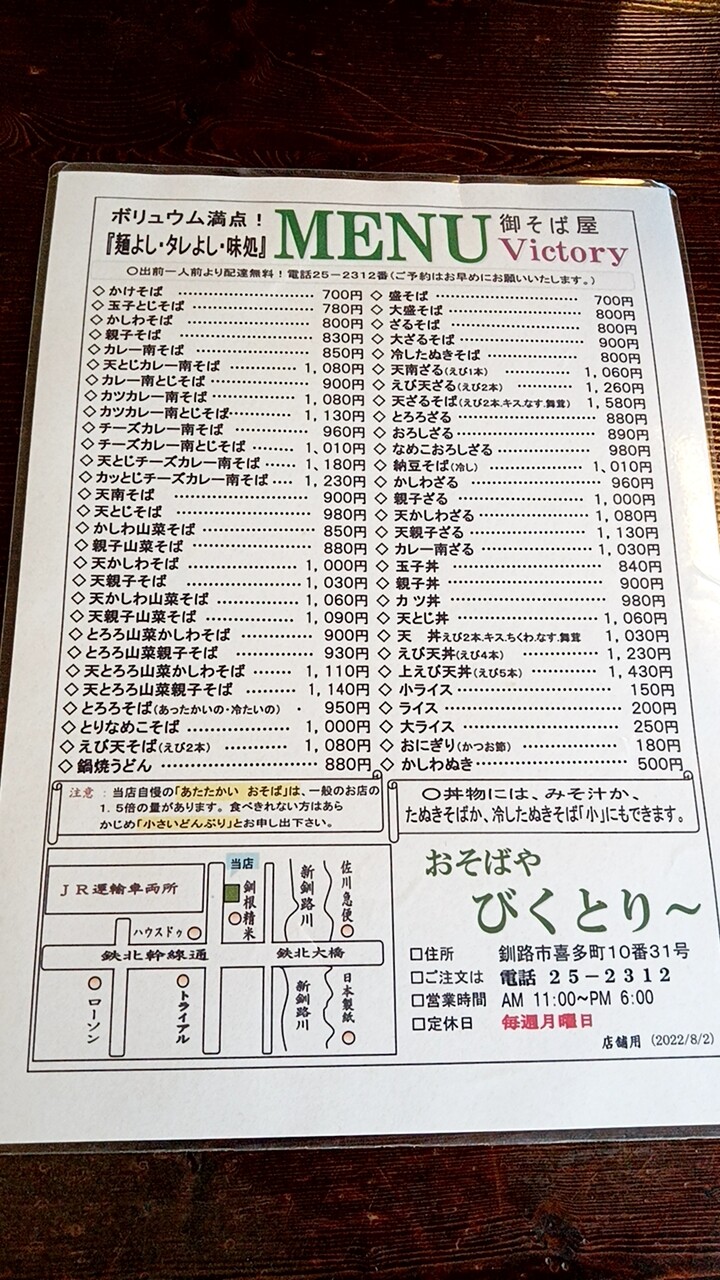 ボリュウム満点！
『麺よし・タレよし・味処』
MENU
御そば屋
Victory
○出前一人前より配達無料！電話25－2312番(ご予約はお早めにお願いいたします。)
◇かけそば ‥‥‥‥‥ 700円
◇玉子とじそば ‥‥‥‥‥ 780円
◇かしわそば ‥‥‥‥‥ 800円
◇親子そば ‥‥‥‥‥ 830円
◇カレー南そば ‥‥‥‥‥ 850円
◇天とじカレー南そば ‥‥‥‥‥ 1,080円
◇カレー南とじそば ‥‥‥‥‥ 900円
◇カツカレー南そば ‥‥‥‥‥ 1,080円
◇カツカレー南とじそば ‥‥‥‥‥ 1,130円
◇チーズカレー南そば ‥‥‥‥‥ 960円
◇チーズカレー南とじそば ‥‥‥‥‥ 1、010円
◇天とじチーズカレー南そば ‥‥‥ 1、180円
◇カッとじチーズカレー南そば ‥‥ 1,230円
◇天南そば ‥‥‥‥‥ 900円
◇天とじそば ‥‥‥‥‥ 980円
◇かしわ山菜そば ‥‥‥‥‥ 850円
◇親子山菜そば ‥‥‥‥‥ 880円
◇天かしわそば ‥‥‥‥‥ 1,000円
◇天親子そば ‥‥‥‥‥ 1,030円
◇天かしわ山菜そば ‥‥‥‥‥ 1,060円
◇天親子山菜そば ‥‥‥‥‥ 1,090円
◇とろろ山菜かしわそば ‥‥‥‥‥ 900円
◇とろろ山菜親子そば ‥‥‥‥‥ 930円
◇天とろろ山菜かしわそば ‥‥‥ 1,110円
◇天とろろ山菜親子そば ‥‥‥‥ 1,140円
◇とろろそば(あったかいの・冷たいの) ・ 950円
◇とりなめこそば ‥‥‥‥‥ 1,000円
◇えび天そば(えび2本) ‥‥‥‥‥ 1,080円
◇鍋焼うどん ‥‥‥‥‥ 880円
◇盛そば ‥‥‥‥‥ 700円
◇大盛そば ‥‥‥‥‥ 800円
◇ざるそば ‥‥‥‥‥ 800円
◇大ざるそば ‥‥‥‥‥ 900円
◇冷したぬきそば ‥‥‥‥‥ 800円
◇天南ざる(えび1本) ‥‥‥‥‥ 1,060円
◇えび天ざる(えび2本) ‥‥‥‥‥ 1,260円
◇天ざるそば(えび2本.キス.なす.舞茸) 1,580円
◇とろろざる ‥‥‥‥‥ 880円
◇おろしざる ‥‥‥‥‥ 890円
◇なめこおろしざる ‥‥‥‥‥ 980円
◇納豆そば(冷し) ‥‥‥‥‥ 1、010円
◇かしわざる ‥‥‥‥‥ 960円
◇親子ざる ‥‥‥‥‥ 1,000円
◇天かしわざる ‥‥‥‥‥ 1,080円
◇天親子ざる ‥‥‥‥‥ 1,130円
◇カレー南ざる ‥‥‥‥‥ 1,030円
◇玉子丼 ‥‥‥‥‥ 840円
◇親子丼 ‥‥‥‥‥ 900円
◇カツ丼 ‥‥‥‥‥ 980円
◇天とじ丼 ‥‥‥‥‥ 1,060円
◇天 丼えび2本.キス.ちくわ.なす.舞茸 1,030円
◇えび天丼(えび4本) ‥‥‥‥‥ 1,230円
◇上えび天丼(えび5本) ‥‥‥‥‥ 1,430円
◇小ライス ‥‥‥‥‥ 150円
◇ライス ‥‥‥‥‥ 200円
◇大ライス ‥‥‥‥‥ 250円
◇おにぎり(かつお節) ‥‥‥‥‥ 180円
◇かしわぬき ‥‥‥‥‥ 500円
注意：当店自慢の「あたたかい おそば」は、一般のお店の
1．5倍の量があります。食べきれない方はあら
かじめ「小さいどんぶり」とお申し出下さい。
○丼物には、みそ汁か、
たぬきそばか、冷したぬきそば「小」にもできます。
ＪＲ運輸車両所
当店
釧根精米
新釧路川
佐川急便
ハウスドゥ
鉄北幹線通
鉄北大橋
ローソン
トライアル
新釧路川
日本製紙
おそばや
びくとり～
□住所 釧路市喜多町10番31号
□ご注文は 電話 ２５－２３１２
□営業時間 AM 11:00～PM 6:00
□定休日 毎週月曜日
店舗用 (2022/8/2)